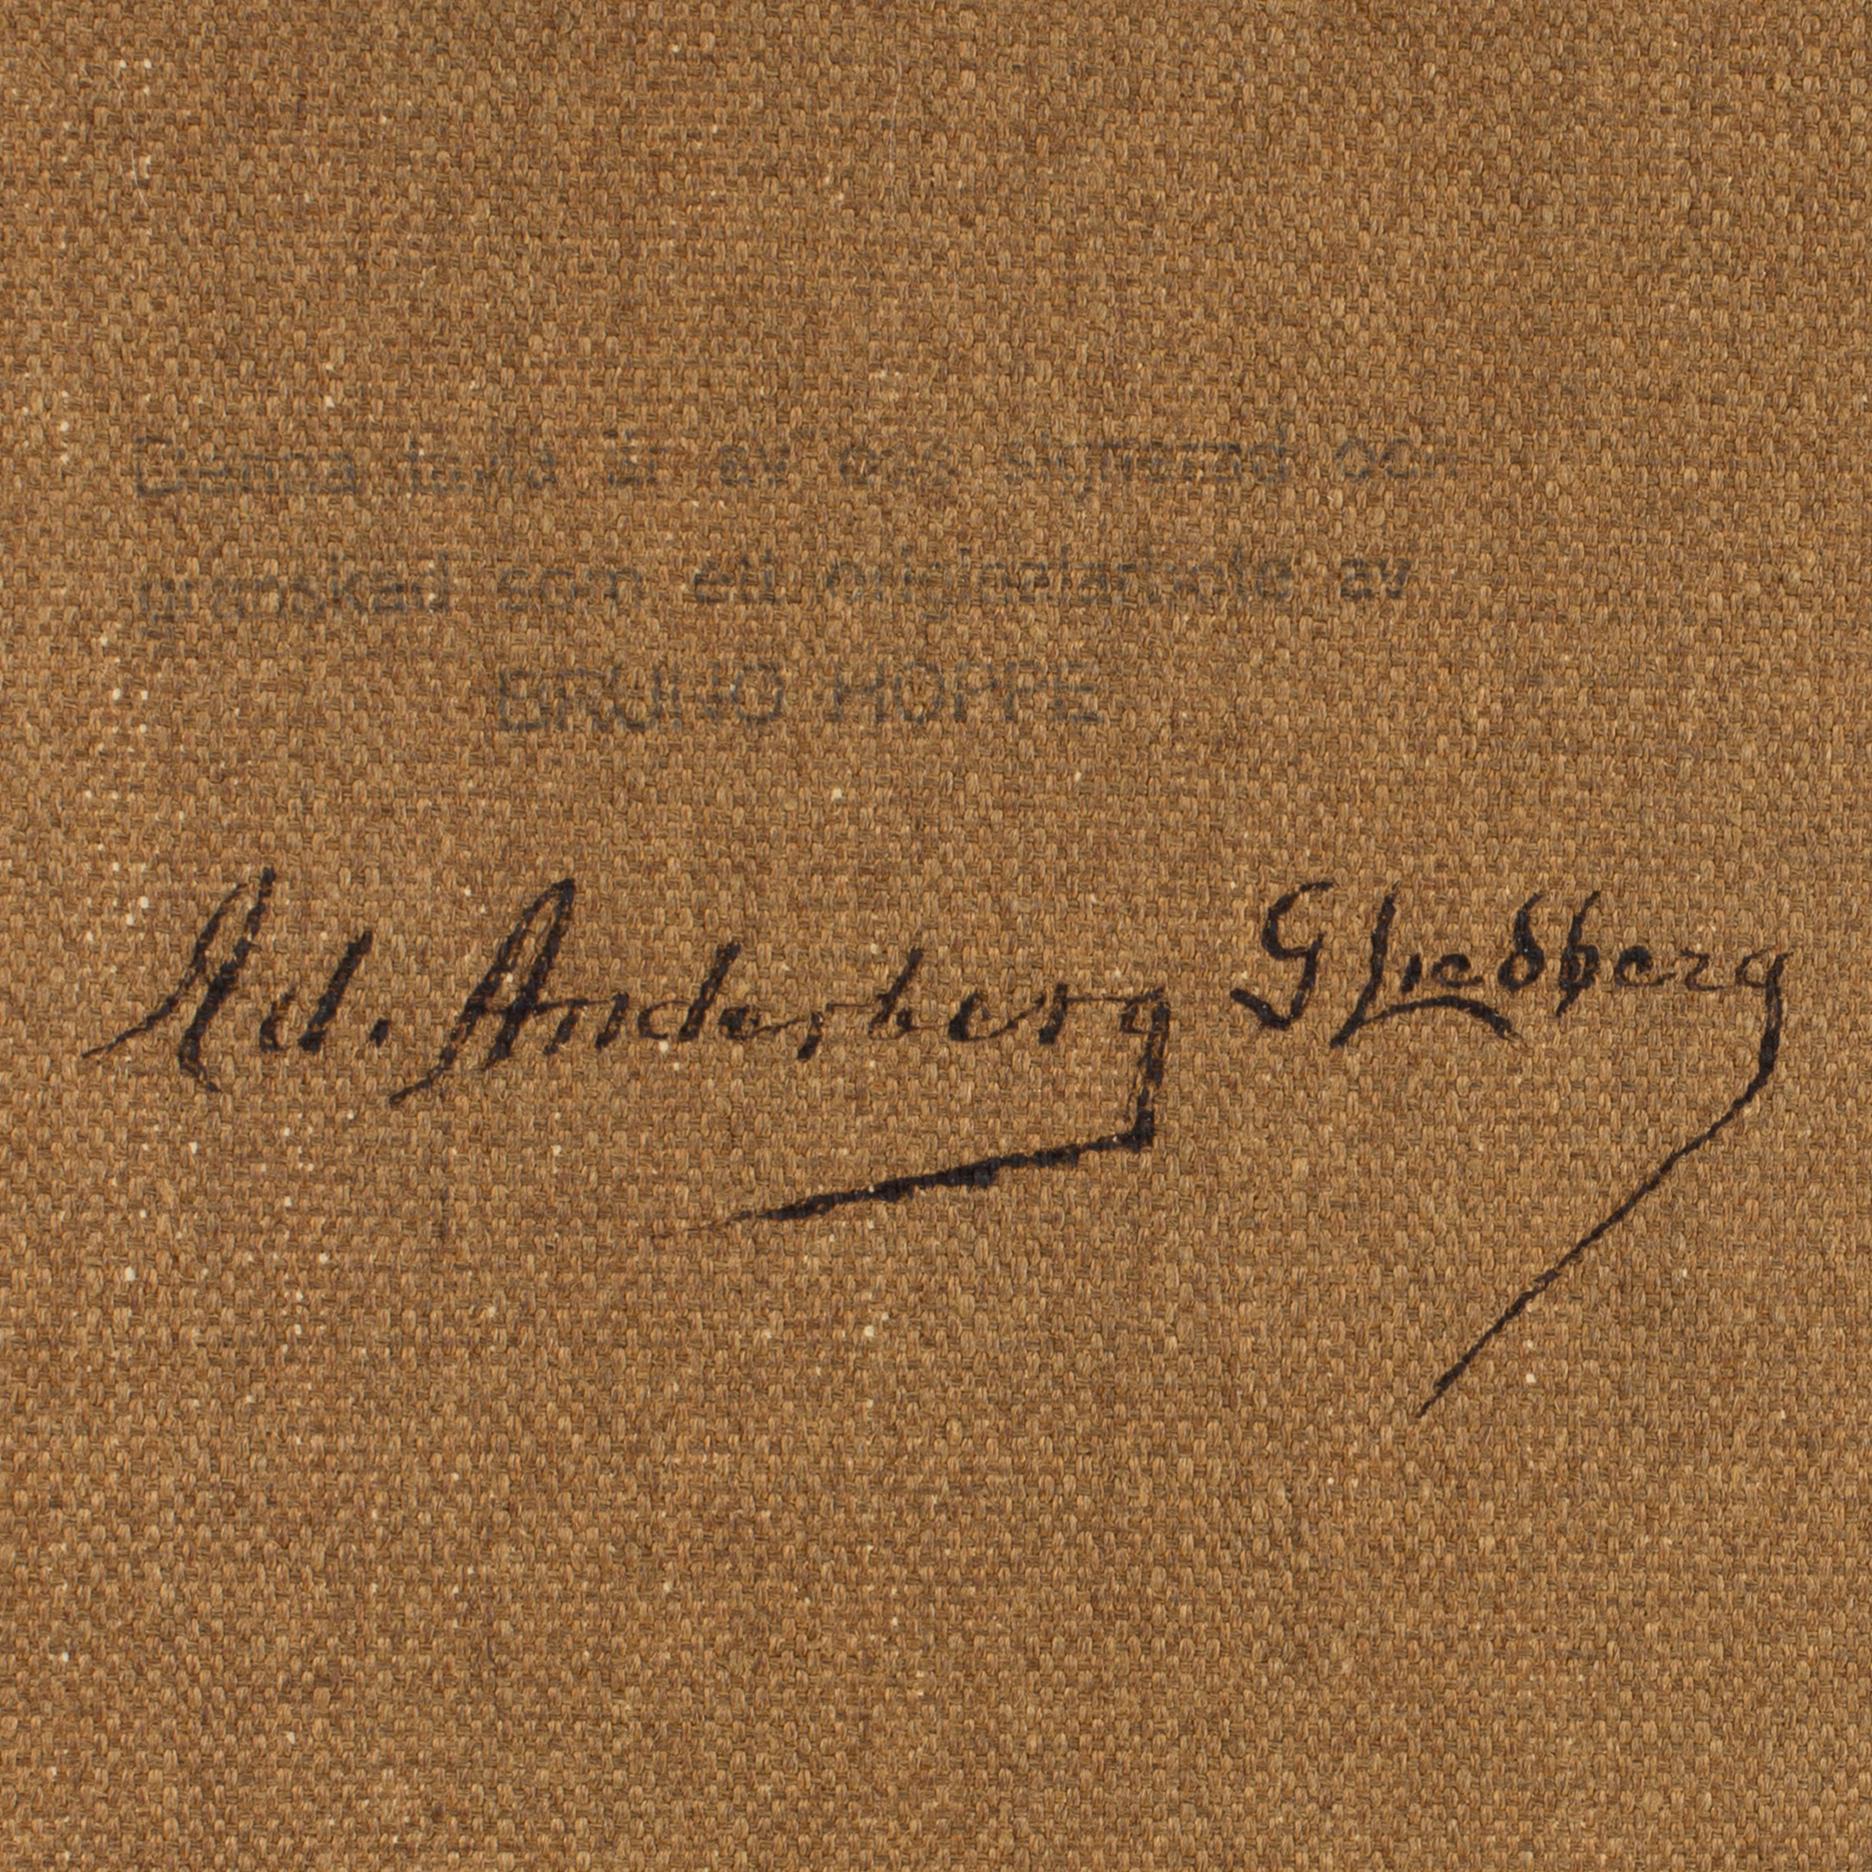 Denna tavla är av oss signerad och
granskad som ett originalarbete av
BRUNO HOPPE
Ad. Anderberg G Liedberg